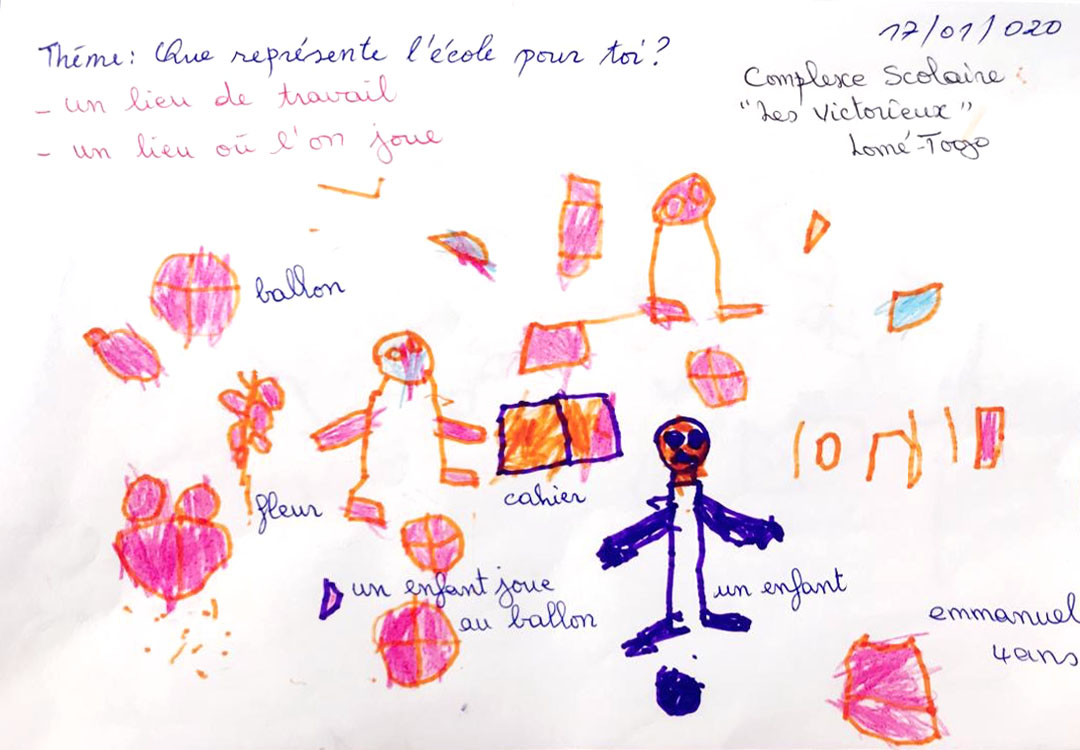 17/01/020
Thème: Que représente l'école pour toi?
- un lieu de travail
- un lieu où l'on joue
Complexe Scolaire
"Les Victorieux"
Lomé-Togo
ballon
fleur
cahier
un enfant joue
au ballon
un enfant
emmanuel
4ans